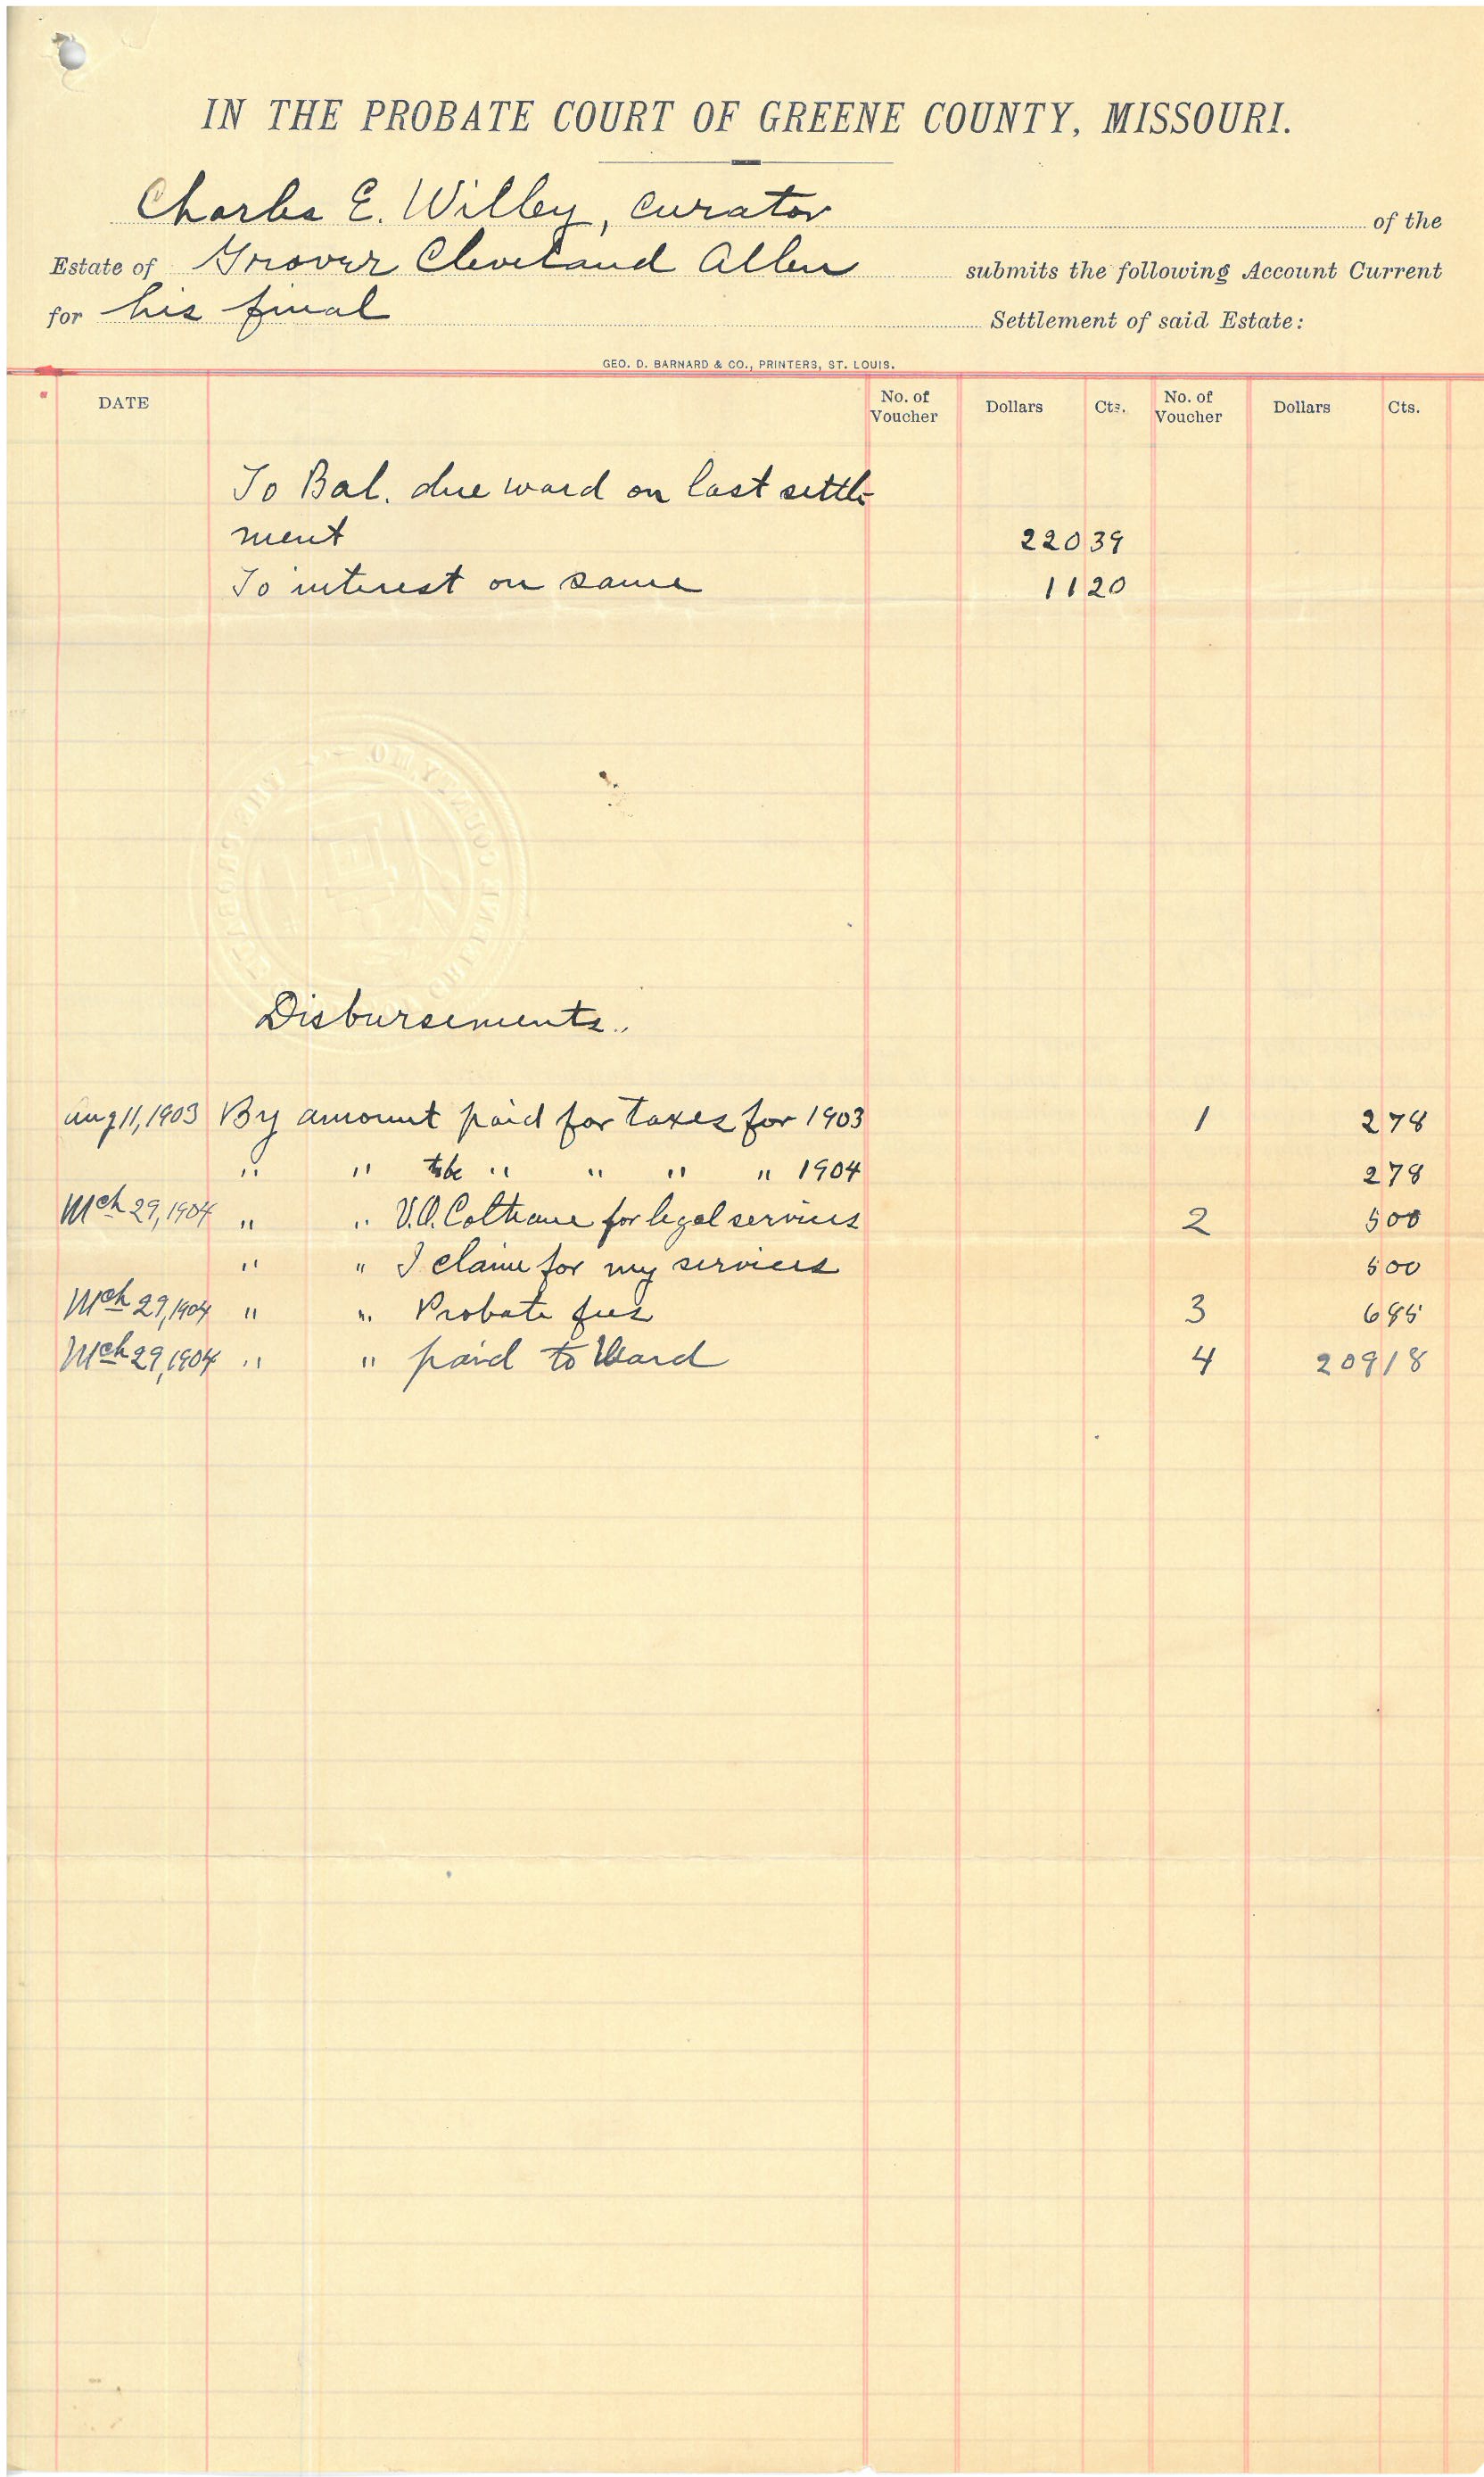 IN THE PROBATE COURT OF GREENE COUNTY, MISSOURI.
Charles E. Willey, curator of the
Estate of Grover Cleveland Allen submits the following Account Current
for his final Settlement of said Estate:
GEO. D. BARNARD & CO., PRINTERS, ST. LOUIS.
DATE No. of Voucher Dollars Cts. No. of Voucher Dollars Cts.
To Bal. due ward on last settle-
ment 220 39
To interest on same 11 20
Disbursements.
Aug 11, 1903 By amount paid for taxes for 1903 1 2 78
" " to be " " " " 1904 2 78
Mch 29, 1904 " " V.O. Coltrane for legal services 2 5 00
" " I claim for my services 5 00
Mch 29, 1904 " " Probate fees 3 6 85
Mch 29, 1904 " " paid to Ward 4 209 18